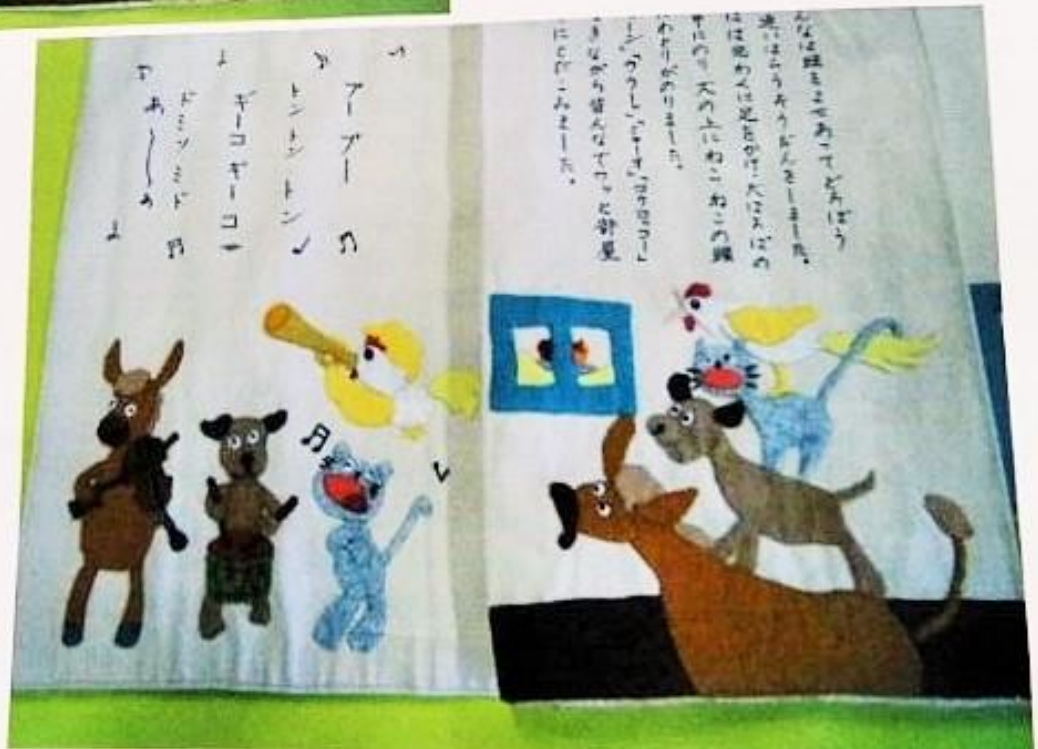 んなは頭をよせあってどろぼう
追いはらうそうだんをしました。
ばは窓わくに足をかけ、犬はろばの
中にのり、犬の上にねこ、ねこの頭
わとりがのりました。
ーン」「ワワーン」「ニャーオ」「コケコッコー」
きながら皆んなでワッと部屋
にとびこみました。
プープー
トントントン
ギーコギーコ
ドミソミド
あ〜〜〜